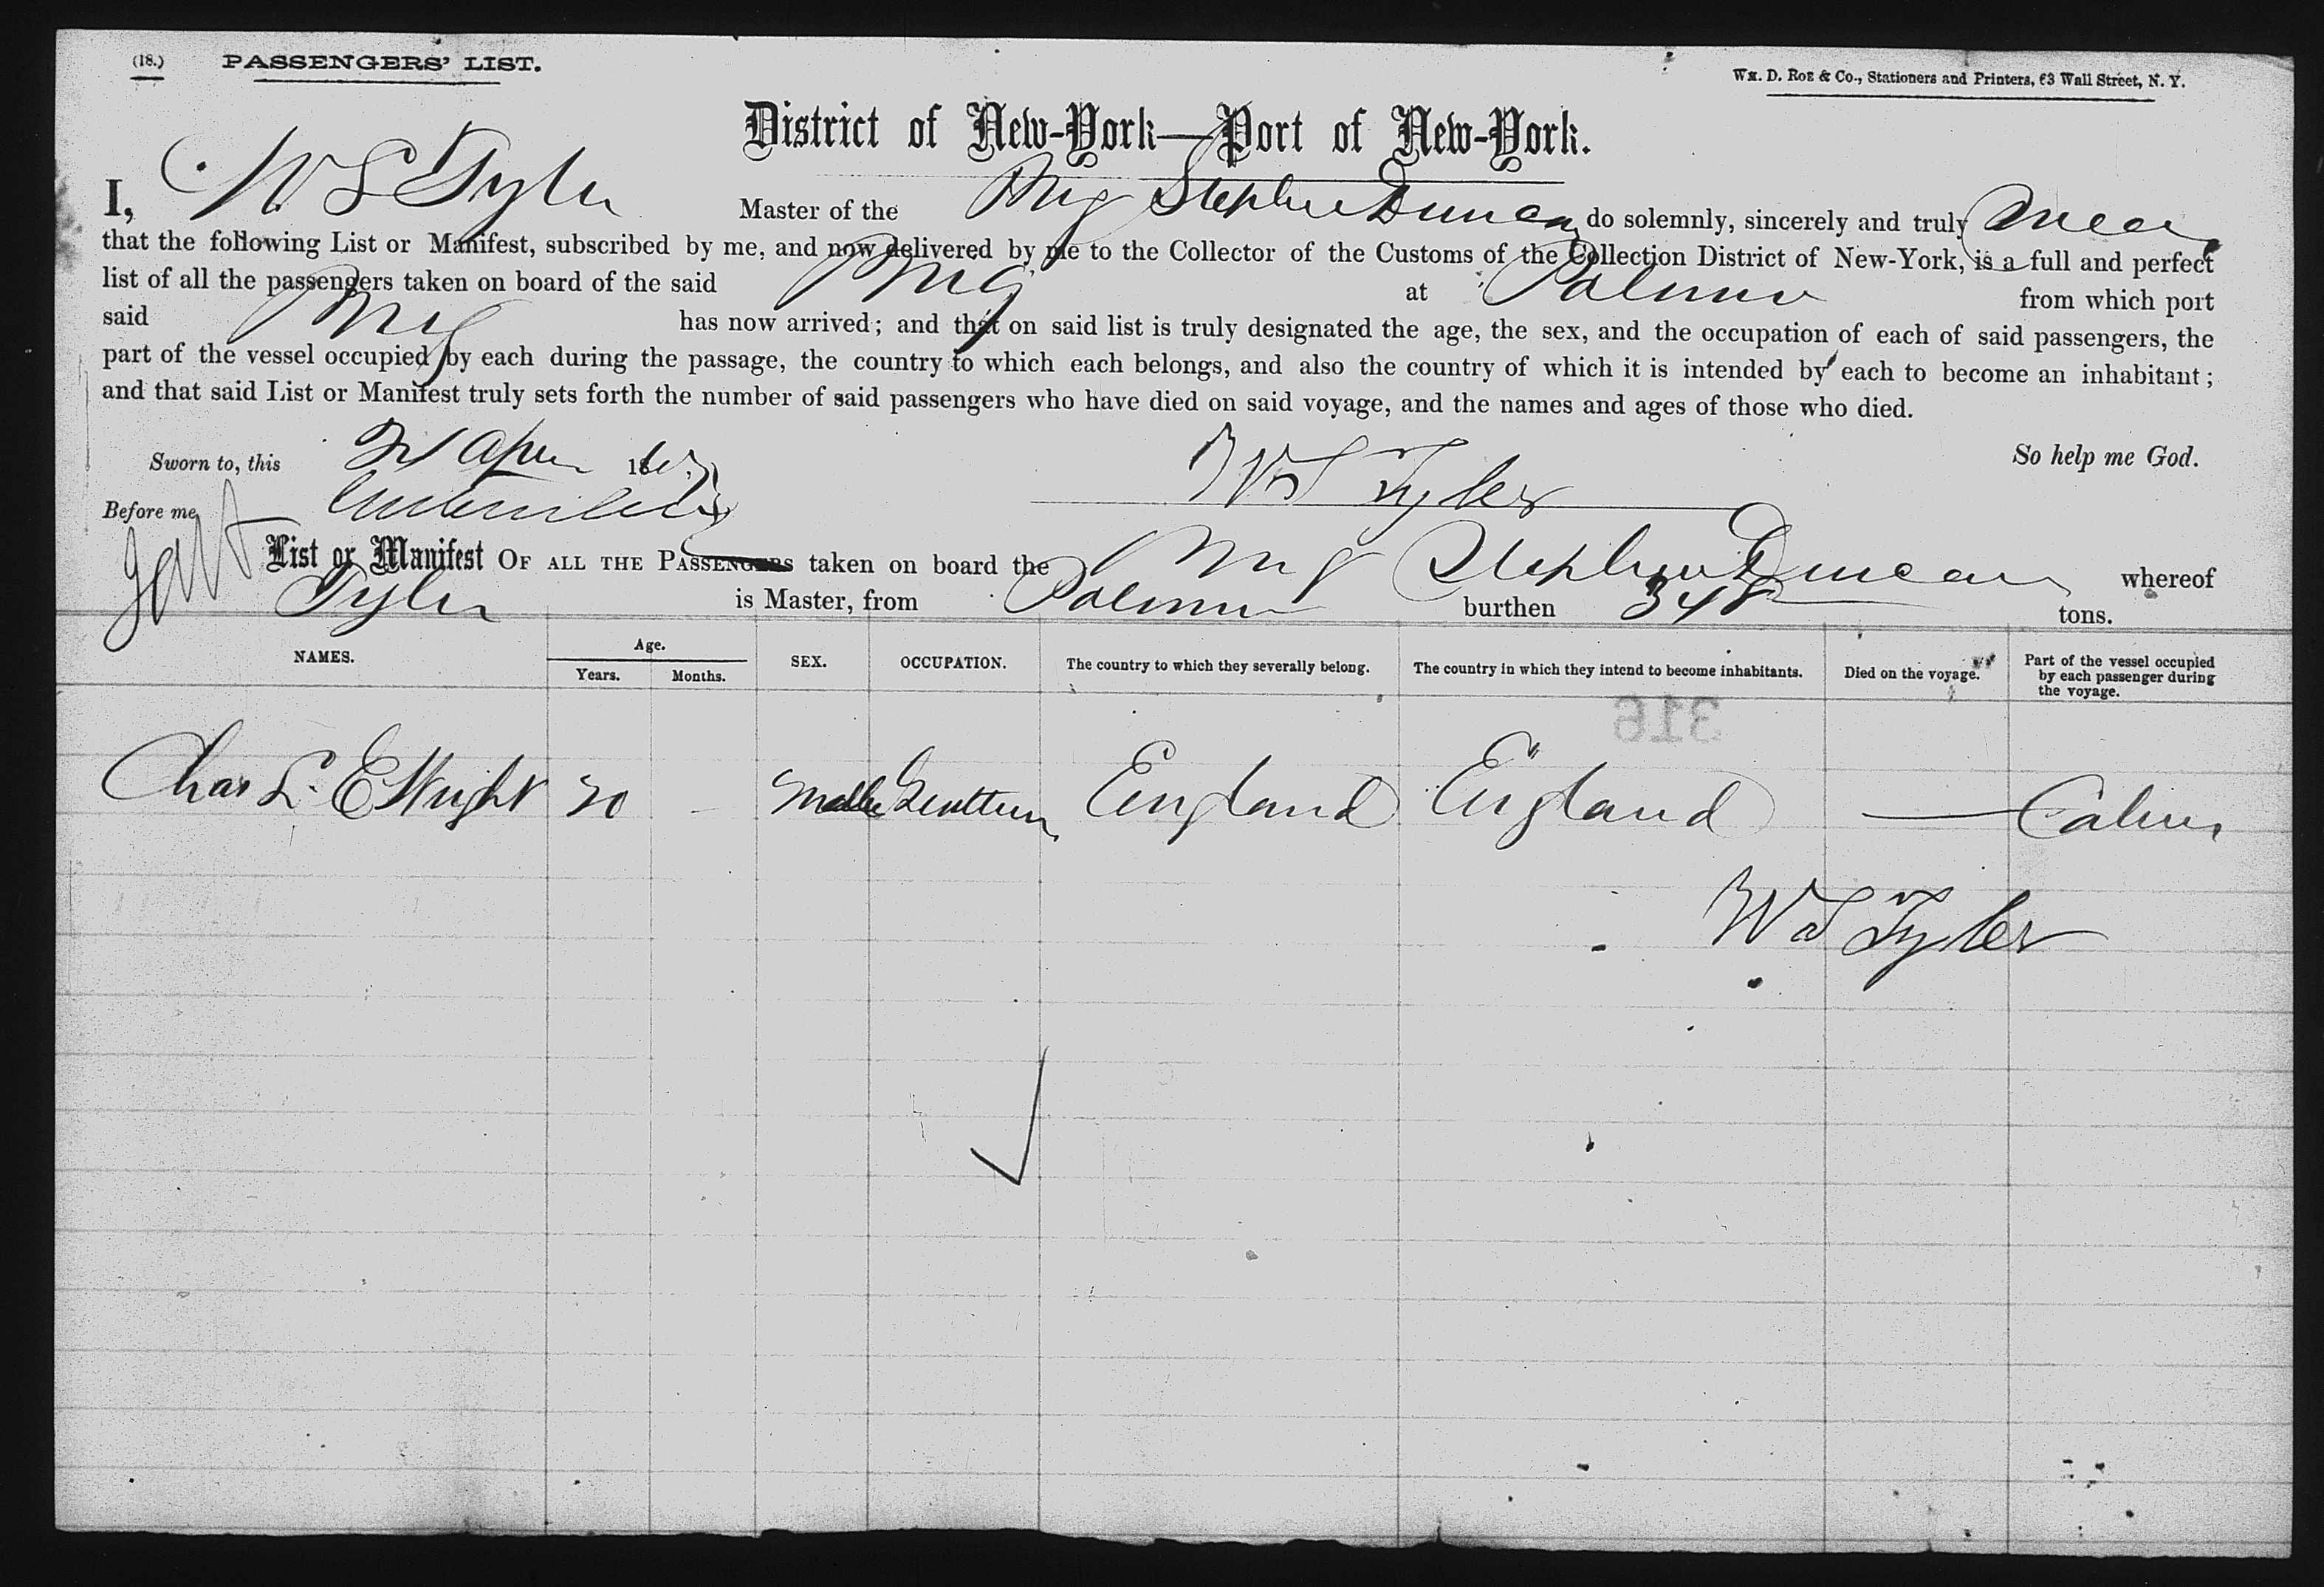 (18.) PASSENGERS' LIST.
Wm. D. Roe & Co., Stationers and Printers, 63 Wall Street, N. Y.
District of New-York—Port of New-York.
I, W S Tyler Master of the Brig Stephen Duncan do solemnly, sincerely and truly swear
that the following List or Manifest, subscribed by me, and now delivered by me to the Collector of the Customs of the Collection District of New-York, is a full and perfect
list of all the passengers taken on board of the said Brig at Palermo from which port
said Brig has now arrived; and that on said list is truly designated the age, the sex, and the occupation of each of said passengers, the
part of the vessel occupied by each during the passage, the country to which each belongs, and also the country of which it is intended by each to become an inhabitant;
and that said List or Manifest truly sets forth the number of said passengers who have died on said voyage, and the names and ages of those who died.
Sworn to, this April 18 W S Tyler So help me God.
Before me,
List or Manifest OF ALL THE PASSENGERS taken on board the Brig Stephen Duncan whereof
Tyler is Master, from Palermo burthen 348 tons.
NAMES. Age. Years. Months. SEX. OCCUPATION. The country to which they severally belong. The country in which they intend to become inhabitants. Died on the voyage. Part of the vessel occupied by each passenger during the voyage.
316
Chas L. E Wright 20 - Male Gentleman England England — Cabin
W S Tyler